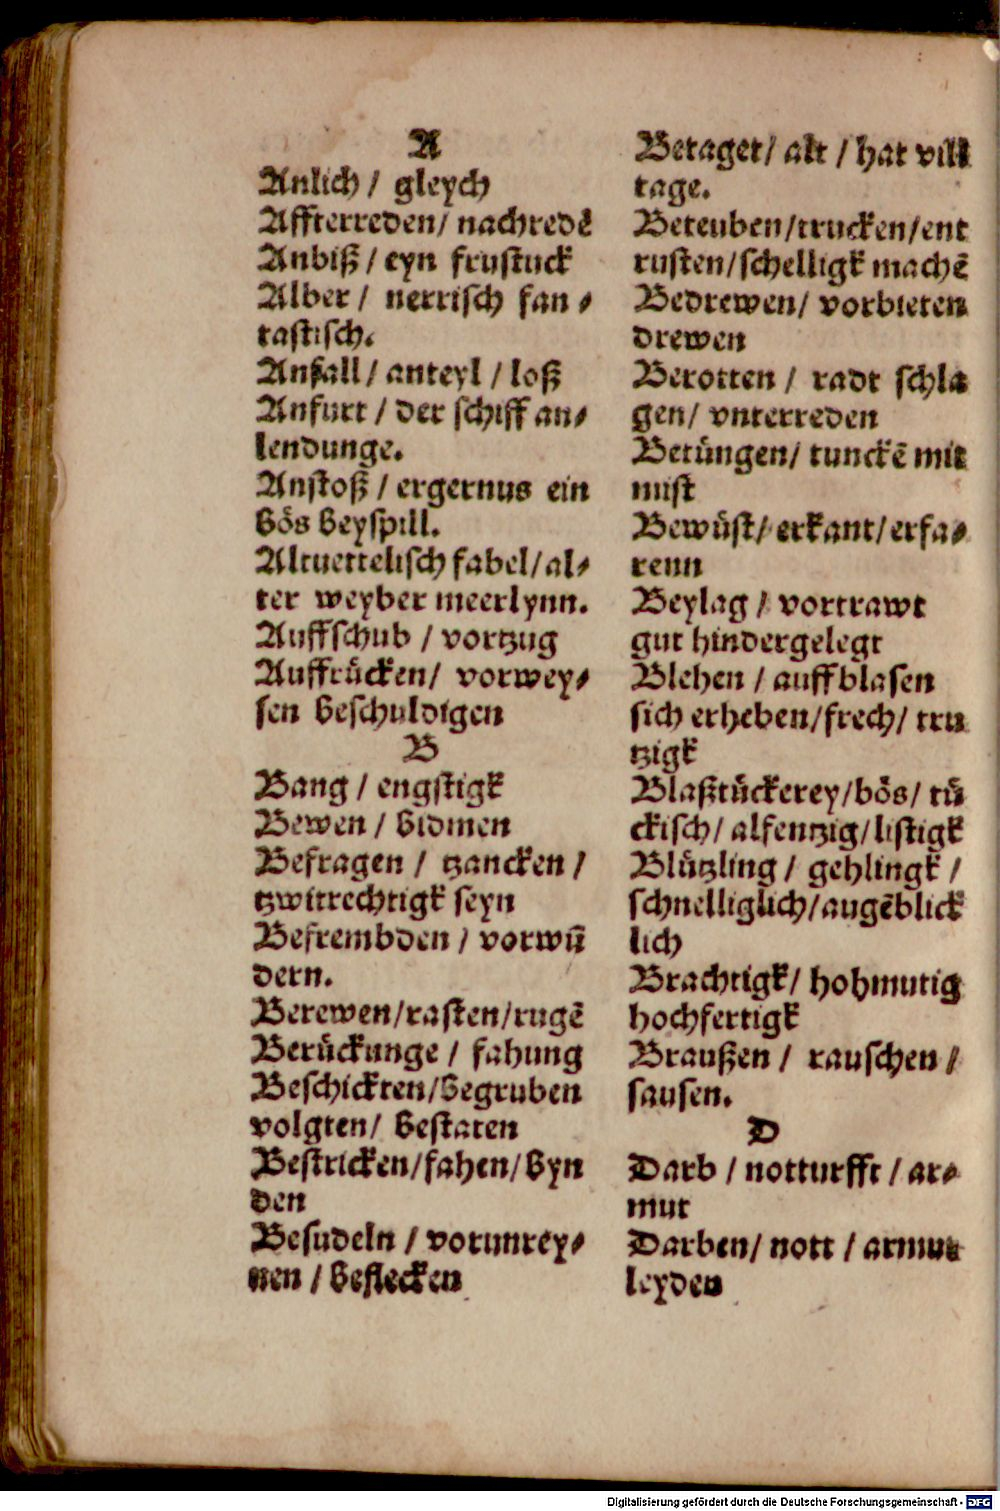 A
Anlich / gleych
Affterreden / nachredē
Anbiß / eyn frustuck
Alber / nerrisch fan⸗
tastisch.
Anfall / anteyl / loß
Anfurt / der schiff an⸗
lendunge.
Anstoß / ergernus ein
bös beyspill.
Altuettelisch fabel / al⸗
ter weyber meerlynn.
Auffschub / vortzug
Auffrücken / vorwey⸗
sen beschuldigen
B
Bang / engstigk
Bewen / bidmen
Befragen / tzancken /
tzwitrechtigk seyn
Befrembden / vorwū
dern.
Berewen / rasten / rugē
Berückunge / fahung
Beschickten / begruben
volgten / bestaten
Bestricken / fahen / byn
den
Besudeln / vorunrey⸗
nen / beflecken
Betaget / alt / hat vill
tage.
Beteuben / trucken / ent
rusten / schelligk machē
Bedrewen / vorbieten
drewen
Berotten / radt schla
gen / vnterreden
Betüngen / tunckē mit
mist
Bewüst / erkant / erfa⸗
renn
Beylag / vortrawt
gut hindergelegt
Blehen / auffblasen
sich erheben / frech / tru
tzigk
Blaßtückerey / bös / tü
ckisch / alfentzig / listigk
Blützling / gehlingk /
schnelliglich / augēblick
lich
Brachtigk / hohmutig
hochfertigk
Braußen / rauschen /
sausen.
D
Darb / notturfft / ar⸗
mut
Darben / nott / armut
leyden
Digitalisierung gefördert durch die Deutsche Forschungsgemeinschaft - DFG